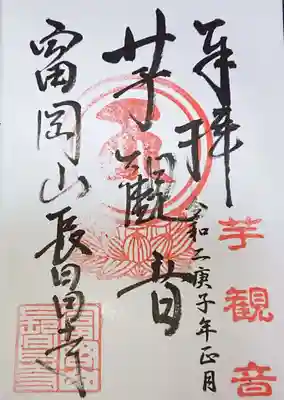 奉拝
芋観音
令和二庚子年正月
芋観音
富岡山長昌寺